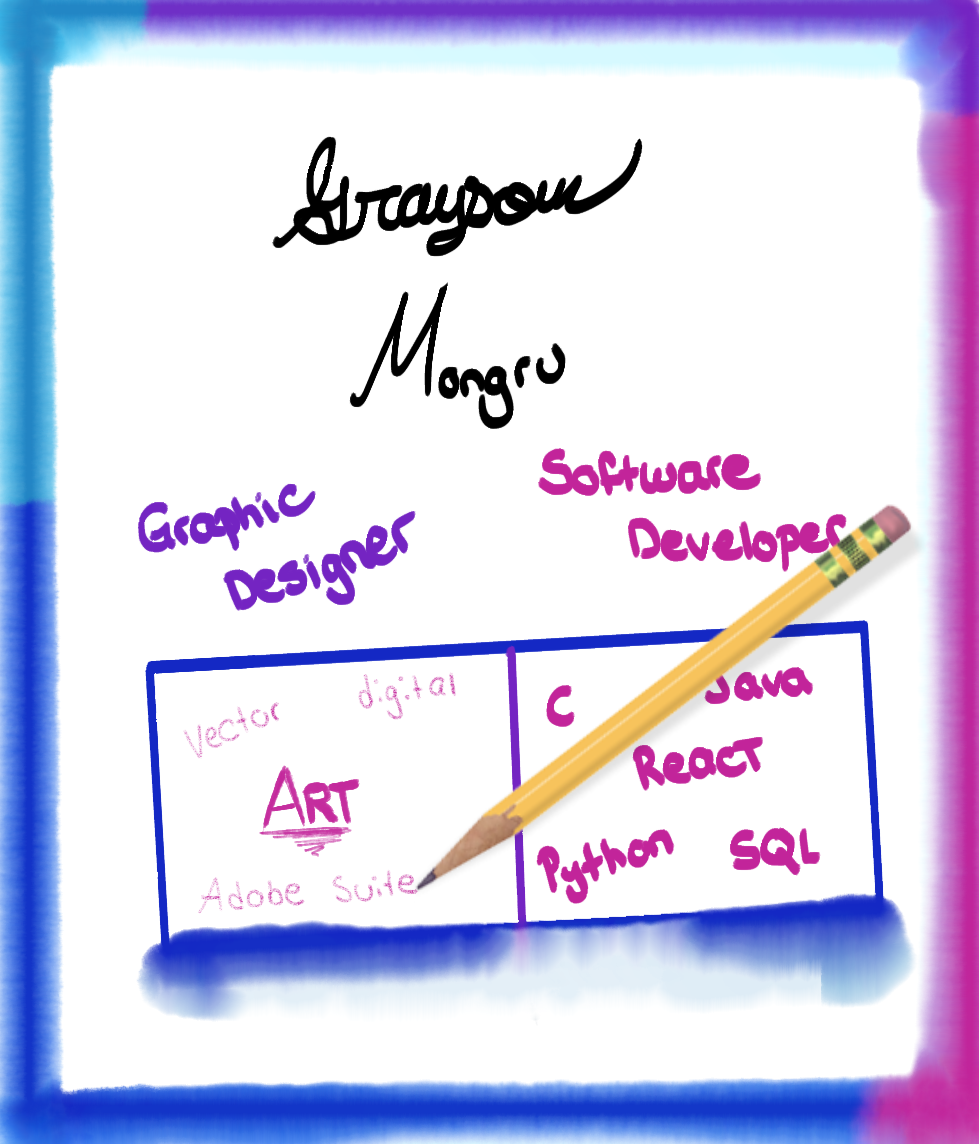 Grayson
Mongru
Graphic
Designer
Software
Developer
vector digital
ART
Adobe Suite
C Java
React
Python SQL